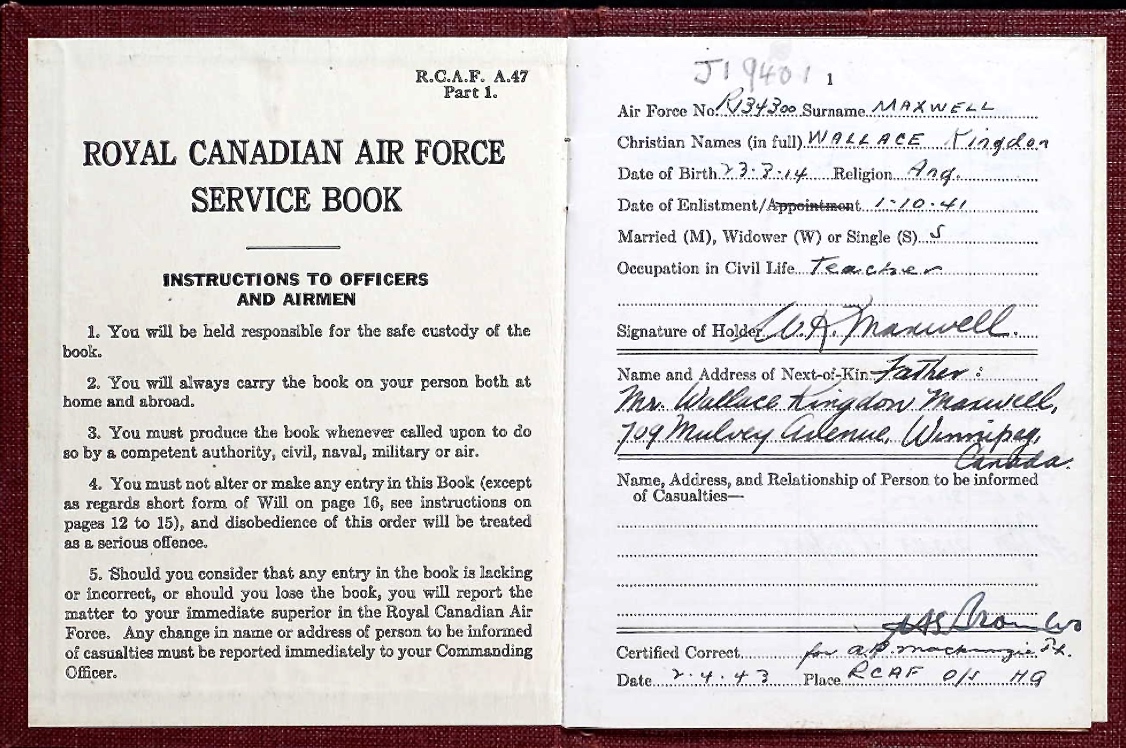 R.C.A.F. A.47
Part 1.
ROYAL CANADIAN AIR FORCE
SERVICE BOOK
INSTRUCTIONS TO OFFICERS
AND AIRMEN
1. You will be held responsible for the safe custody of the
book.
2. You will always carry the book on your person both at
home and abroad.
3. You must produce the book whenever called upon to do
so by a competent authority, civil, naval, military or air.
4. You must not alter or make any entry in this Book (except
as regards short form of Will on page 16, see instructions on
pages 12 to 15), and disobedience of this order will be treated
as a serious offence.
5. Should you consider that any entry in the book is lacking
or incorrect, or should you lose the book, you will report the
matter to your immediate superior in the Royal Canadian Air
Force. Any change in name or address of person to be informed
of casualties must be reported immediately to your Commanding
Officer.
J19401 1
Air Force No. R134300 Surname MAXWELL
Christian Names (in full) WALLACE Kingdon
Date of Birth 23.8.14 Religion Ang.
Date of Enlistment/Appointment 1-10-41
Married (M), Widower (W) or Single (S) S
Occupation in Civil Life Teacher
Signature of Holder W.K. Maxwell.
Name and Address of Next-of-Kin Father:
Mr. Wallace Kingdon Maxwell,
709 Mulvey Avenue, Winnipeg,
Canada.
Name, Address, and Relationship of Person to be informed
of Casualties—
Certified Correct for
Date 2.4.43 Place RCAF O/S HQ